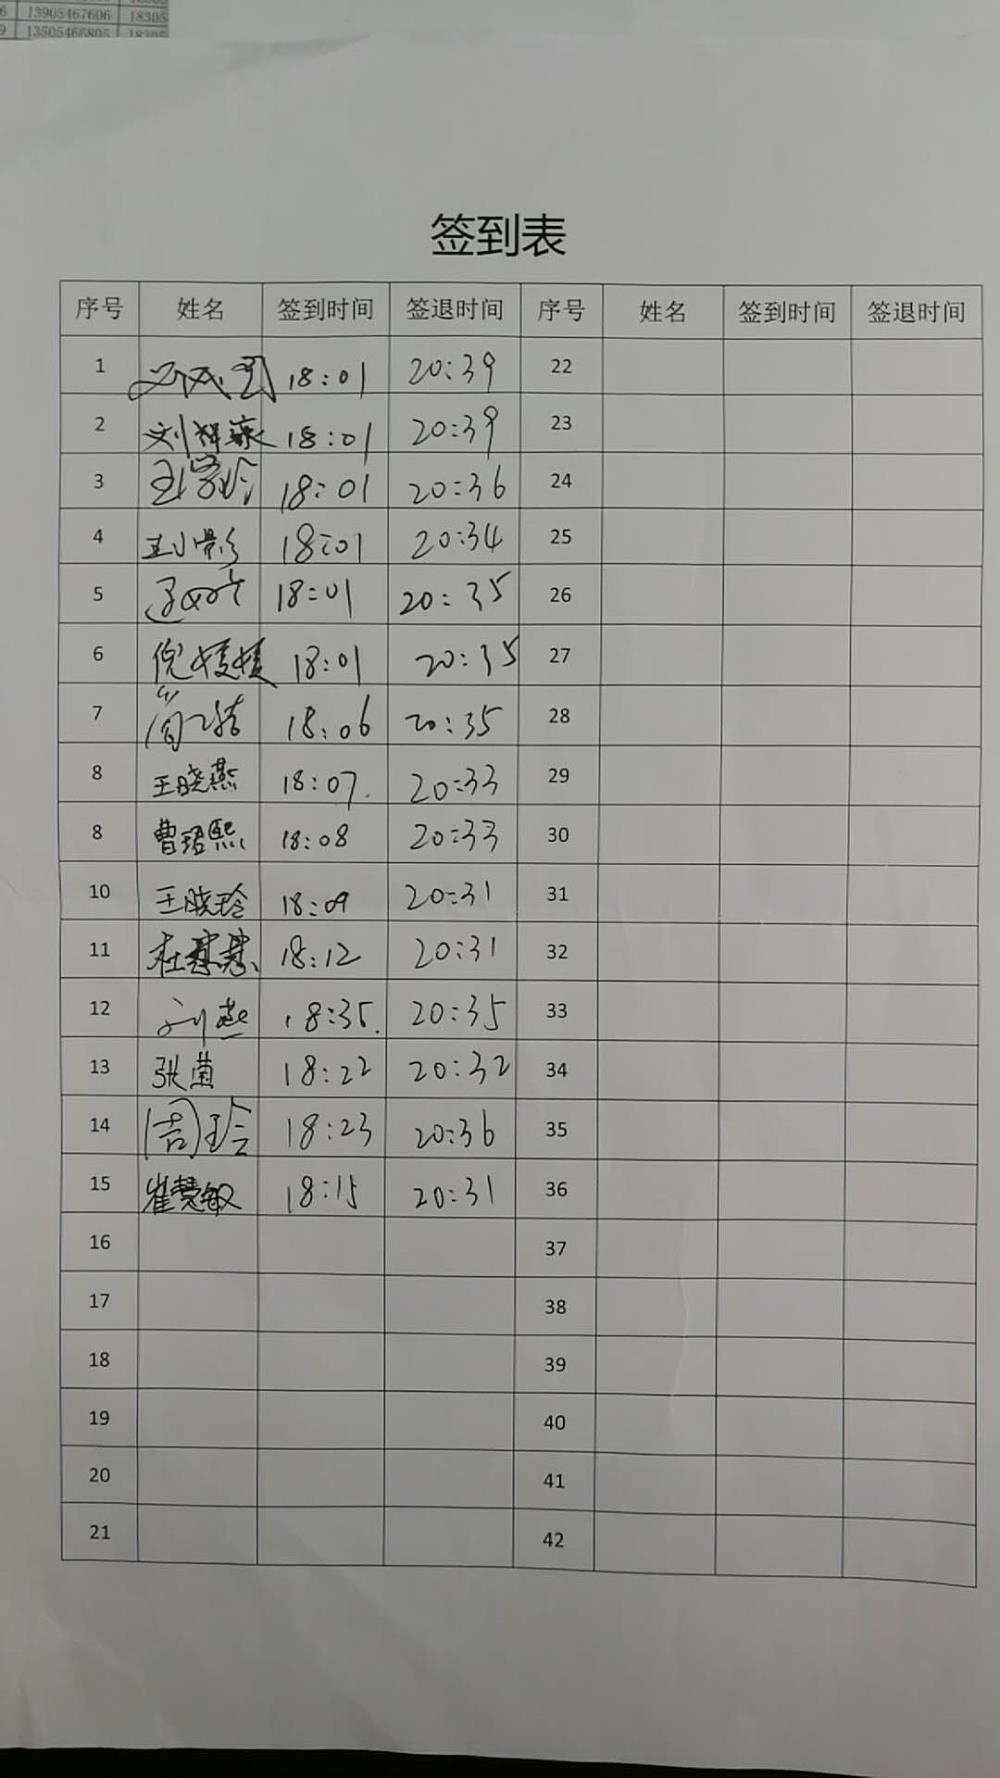 6 13905467606 18305
9 13505466805 18305
签到表
序号 姓名 签到时间 签退时间 序号 姓名 签到时间 签退时间
1 18:01 20:39 22
2 刘 18:01 20:39 23
3 18:01 20:36 24
4 王小影 18:01 20:34 25
5 18:01 20:35 26
6 倪媛媛 18:01 20:35 27
7 18:06 20:35 28
8 王晓燕 18:07. 20:33 29
8 曹珺熙 18:08 20:33 30
10 王晓玲 18:09 20:31 31
11 杜慧慧 18:12 20:31 32
12 刘燕 18:35. 20:35 33
13 张菌 18:22 20:32 34
14 周玲 18:23 20:36 35
15 崔慧敏 18:15 20:31 36
16 37
17 38
18 39
19 40
20 41
21 42